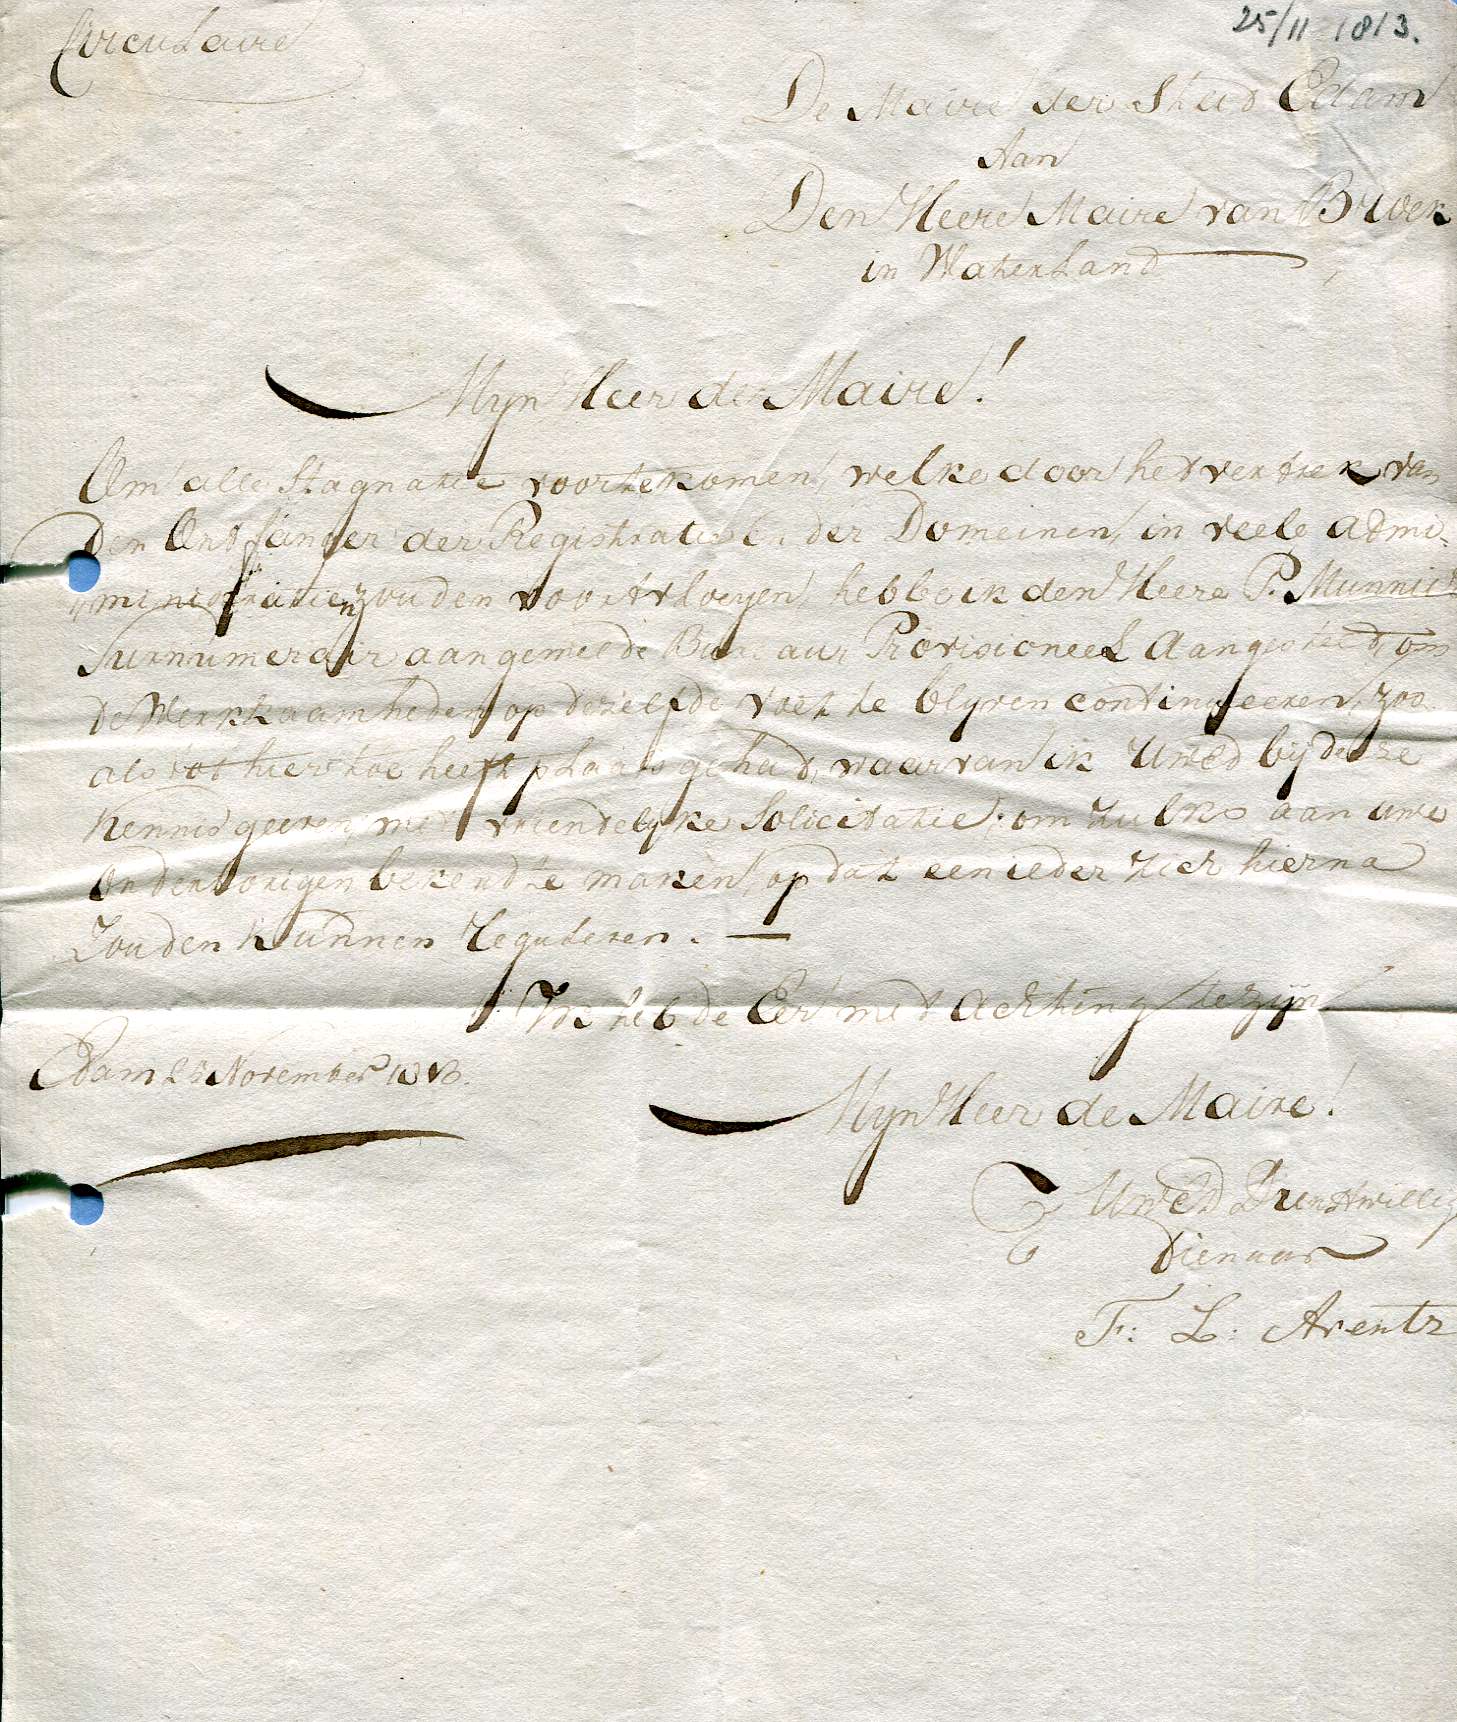 Circulaire
25/11 1813.
De Maire der Stad Edam
Aan
Den Heere Maire van Broek
in Waterland
Mijn Heer de Maire!
Om alle Stagnatie voortekomen, welke door het vertrek van
den Ontfanger der Registratie en der Domeinen, in veele admi-
ministratien zouden voortvloeyen, hebbe ik den Heere P. Munnik
Surnumerair aangemelde Bureaux Provisioneel aangesteld, om
de Werkzaamheden op dezelfde voet te blyven continueeren, zoo
als tot hier toe heeft plaats gehad, waarvan ik UwEd bij deeze
kennis geeve, met vriendelyke Solicitatie, om zulks aan uwe
onderhorigen bekend te maken, op dat een ieder zich hierna
zouden kunnen reguleren. —
Ik heb de Eer met achting te zijn
Edam 25 November 1813.
Mijn Heer de Maire!
UwEd Dienstwillige
Dienaar
F: L: Arentz